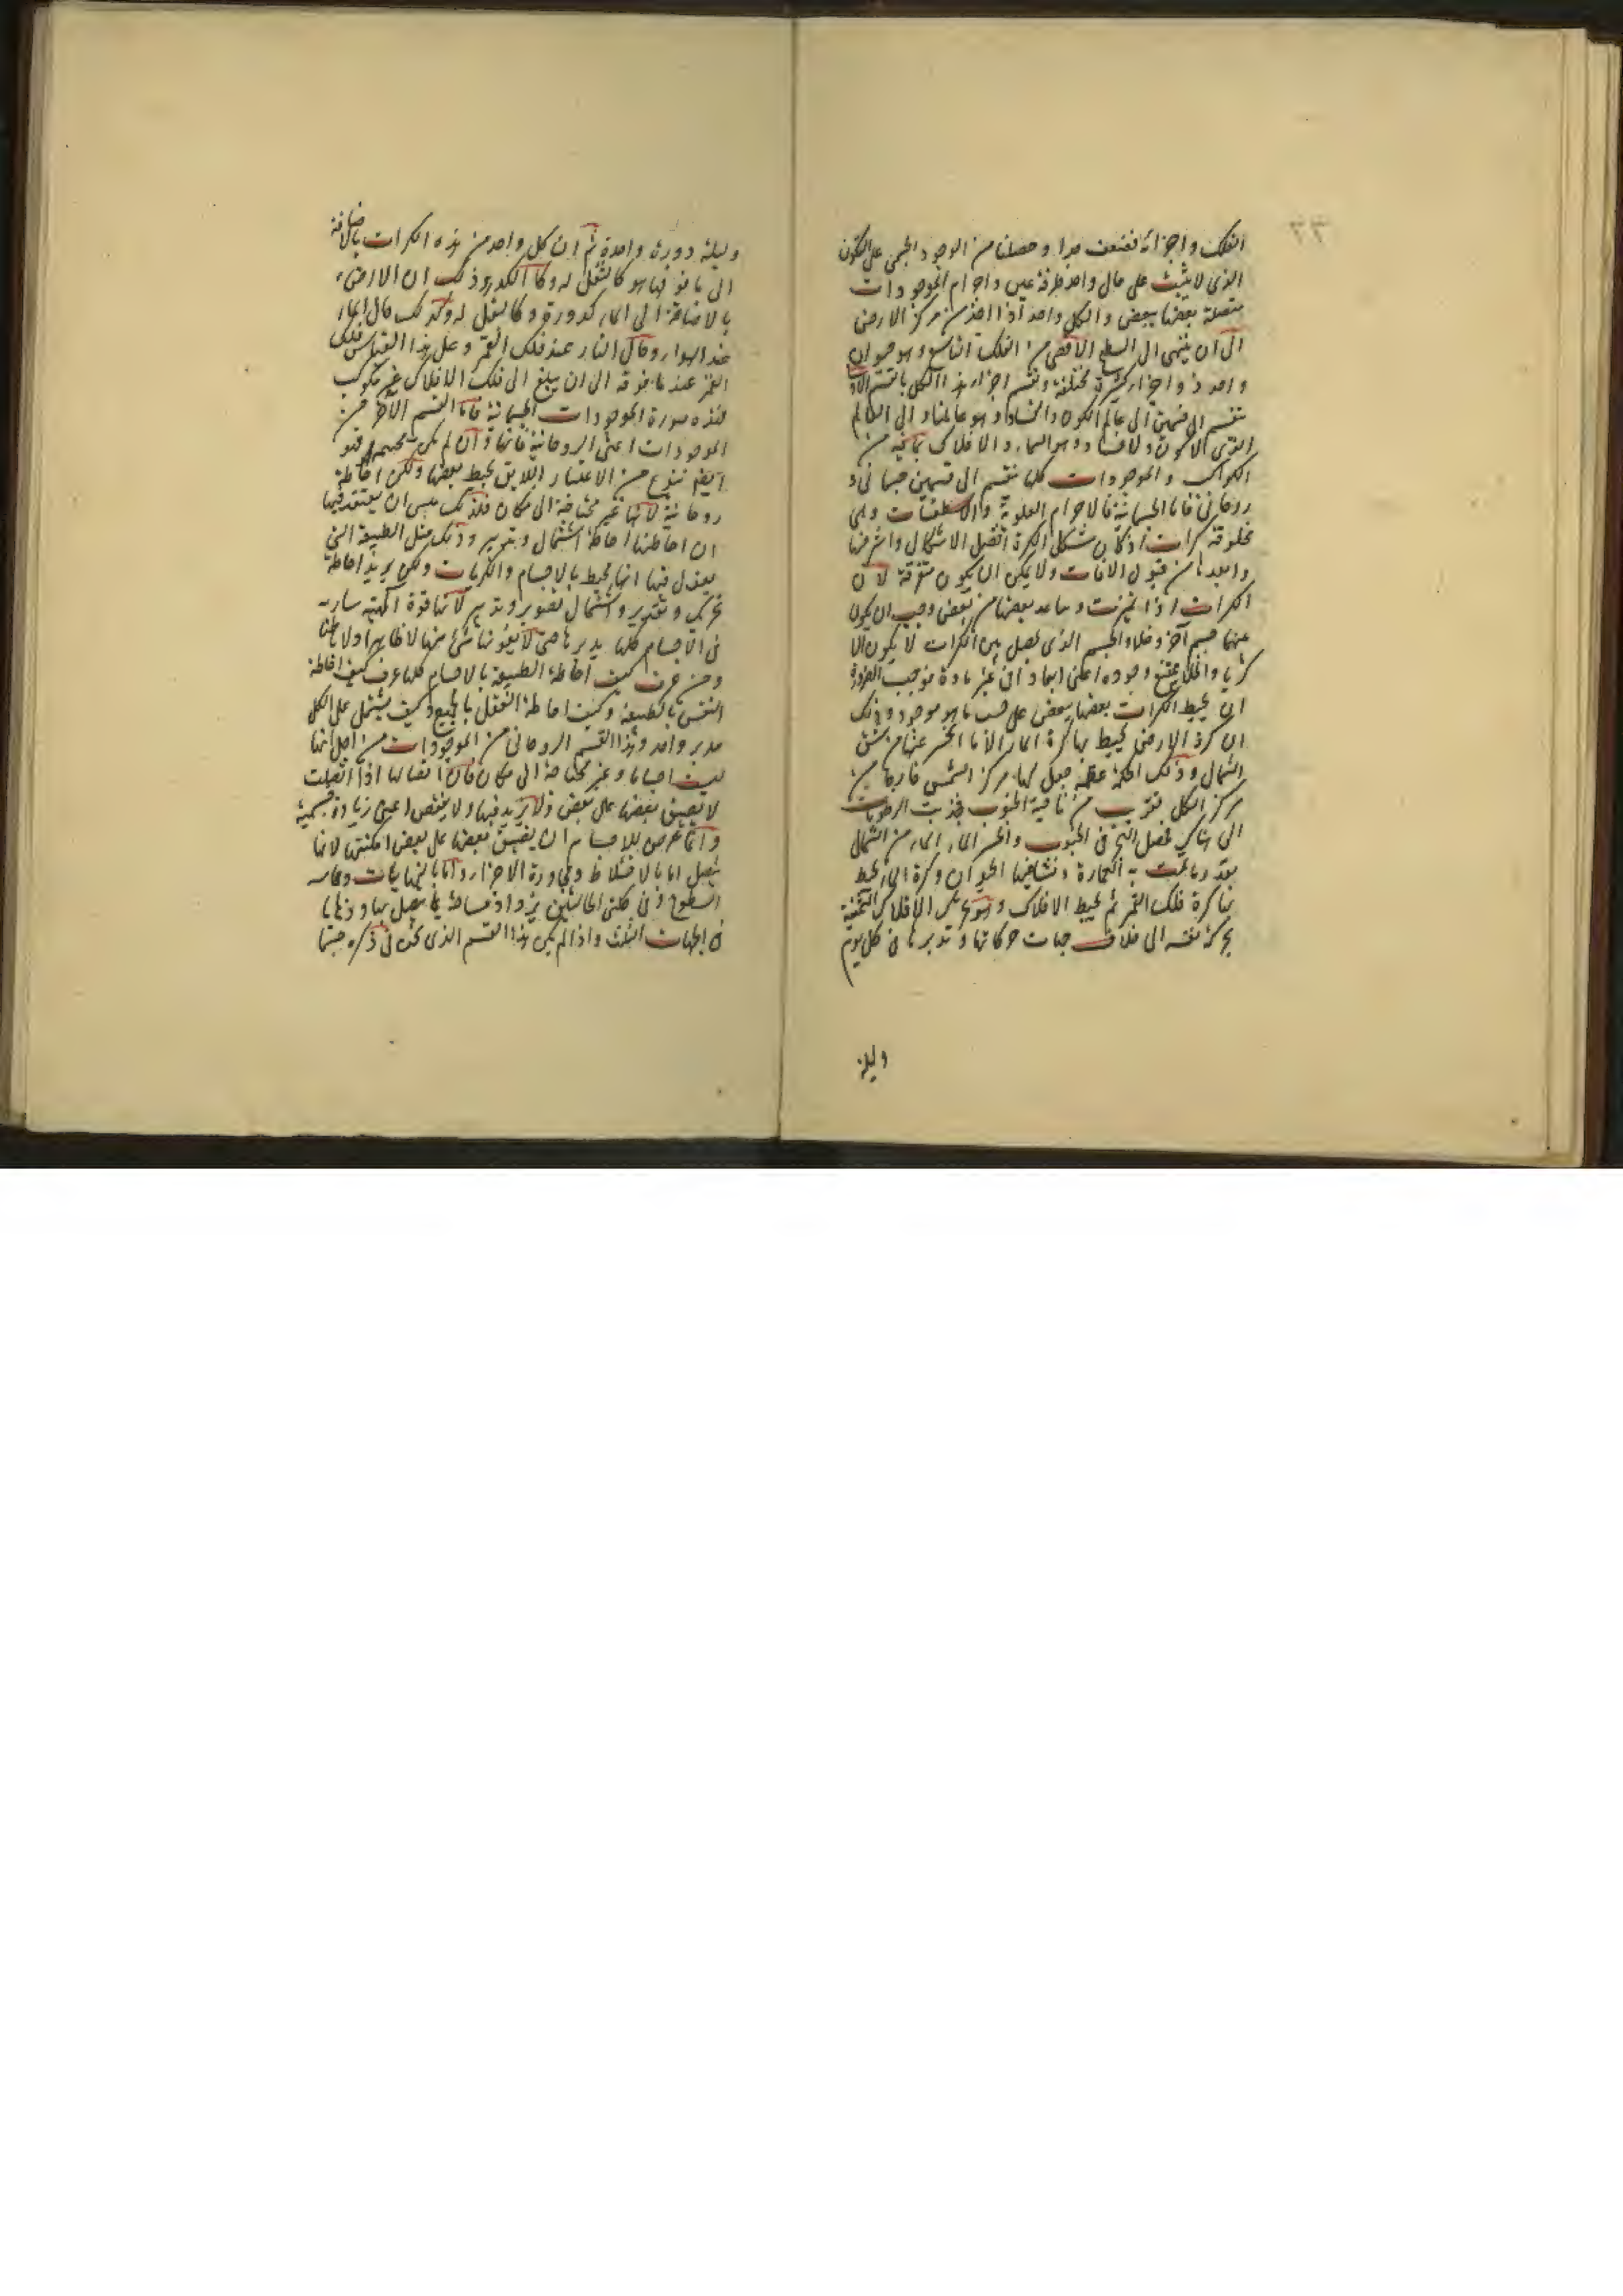 ٣٣
الفلك واجزائه فضعف جدا وحصلنا من الوجود الجسمى على التكون
الذى لا يثبت على حال واحد طرفة عين واجرام الموجودات
متصلة بعضها ببعض والكل واحد اذا اخذ من مركز الارض
الى ان ينتهى الى السطح الاقصى من الفلك التاسع وهو حيوان
واحد ذو اجزاء كثيرة مختلفة وتنقسم اجزاء هذا الكل بالقسم الاول
تنقسم الى قسمين الى عالم الكون والفساد وهو عالمنا والى العالم
الذى لا كون ولا فساد وهو السماء والافلاك بما فيه من
الكواكب والموجودات كلها تنقسم الى قسمين جسمانى و
روحانى فاما الجسمانية فالاجرام العلوية والاسطقسات وهى
مخلوقة كرات اذ كان شكل الكرة افضل الاشكال واشرفها
وابعدها من قبول الافات ولا يمكن ان يكون متفرقة لان
الكرات اذا تميزت وتباعد بعضها من بعض وجب ان يكون
بينها جسم آخر وخلاء والجسم الذى يحصل بين الكرات لا يكون الا
كريا والخلاء يمتنع وجوده اعنى ابعاد افى غير مادة فوجب الضرورة
ان يحيط الكرات بعضها ببعض على حسب ما هو موجود وذلك
ان كرة الارض يحيط بها كرة الماء الا ما انحسر عنها من شق
الشمال وذلك لحكمة عظيمة جعل لها مركز الشمس خارجا من
مركز الكل فتقرب من ناحية الجنوب فجذبت الرطوبات
الى هناك فحصل البحر فى الجنوب وانحسر الماء الماء من الشمال
بقدر ما تمت به العمارة ونشأ فيها الحيوان وكرة الماء يحيط
بها كرة فلك القمر ثم يحيط الافلاك وهو يحرك الافلاك التحتية
بحركة نفسه الى خلاف جهات حركاتها وتدبرها فى كل يوم
وليلة
وليلة دورة واحدة ثم ان كل واحد من هذه الكرات بالاضافة
الى ما فوقها هو كالثفل له وكالكدر وذلك ان الارض
بالاضافة الى الماء كدورة وكالثفل له وكذلك حال الماء
عند الهواء وحال النار عند فلك القمر وعلى هذا القياس فلك
القمر عند ما فوقه الى ان يبلغ الى فلك الافلاك غير مكوكب
فهذه صورة الموجودات الجسمانية فاما القسم الآخر من
الموجودات اعنى الروحانية فانها وان لم يكن جسيمة فهو
ايضا بنوع من الاعتبار اللايق يحيط بعضها ولكن احاطة
روحانية لانها غير محتاجة الى مكان فلذلك ينبغى ان يعتقد فيها
ان احاطتها احاطة اشتمال وتدبير وذلك مثل الطبيعة التى
يقول فيها انها تحيط بالاجسام والكريات ولكن يريد احاطة
تحريك وتقدير واشتمال تصوير وتدبير لانها قوة الهية سارية
فى الاجسام كلها يدبرها حتى لا يفوتها شئ منها لا ظاهرا ولا باطنا
ومن عرف كيف احاطة الطبيعة بالاجسام كلها عرف كيف احاطة
النفس بالطبيعة وكيف احاطة العقل بالجميع وكيف يشتمل على الكل
مدبر واحد وهذا القسم الروحانى من الموجودات من اجل انها
ليست اجساما وغير محتاجة الى مكان فان اتصالها اذا اتصلت
لا يضيق بعضها على بعض ولا يزيد فيها ولا ينقص اعنى زيادة جسمية
وانما عرض للاجسام ان يضيق بعضها على بعض امكنتها لانها
يتصل اما بالاختلاط ومجاورة الاجزاء واما بالنهايات ومماسة
السطوح وفى كلتى الحالتين يزداد مساحة ما يتصل بها وذهابها
فى الجهات الثلث واذا لم يكن هذا القسم الذى نحن فى ذكره جسما